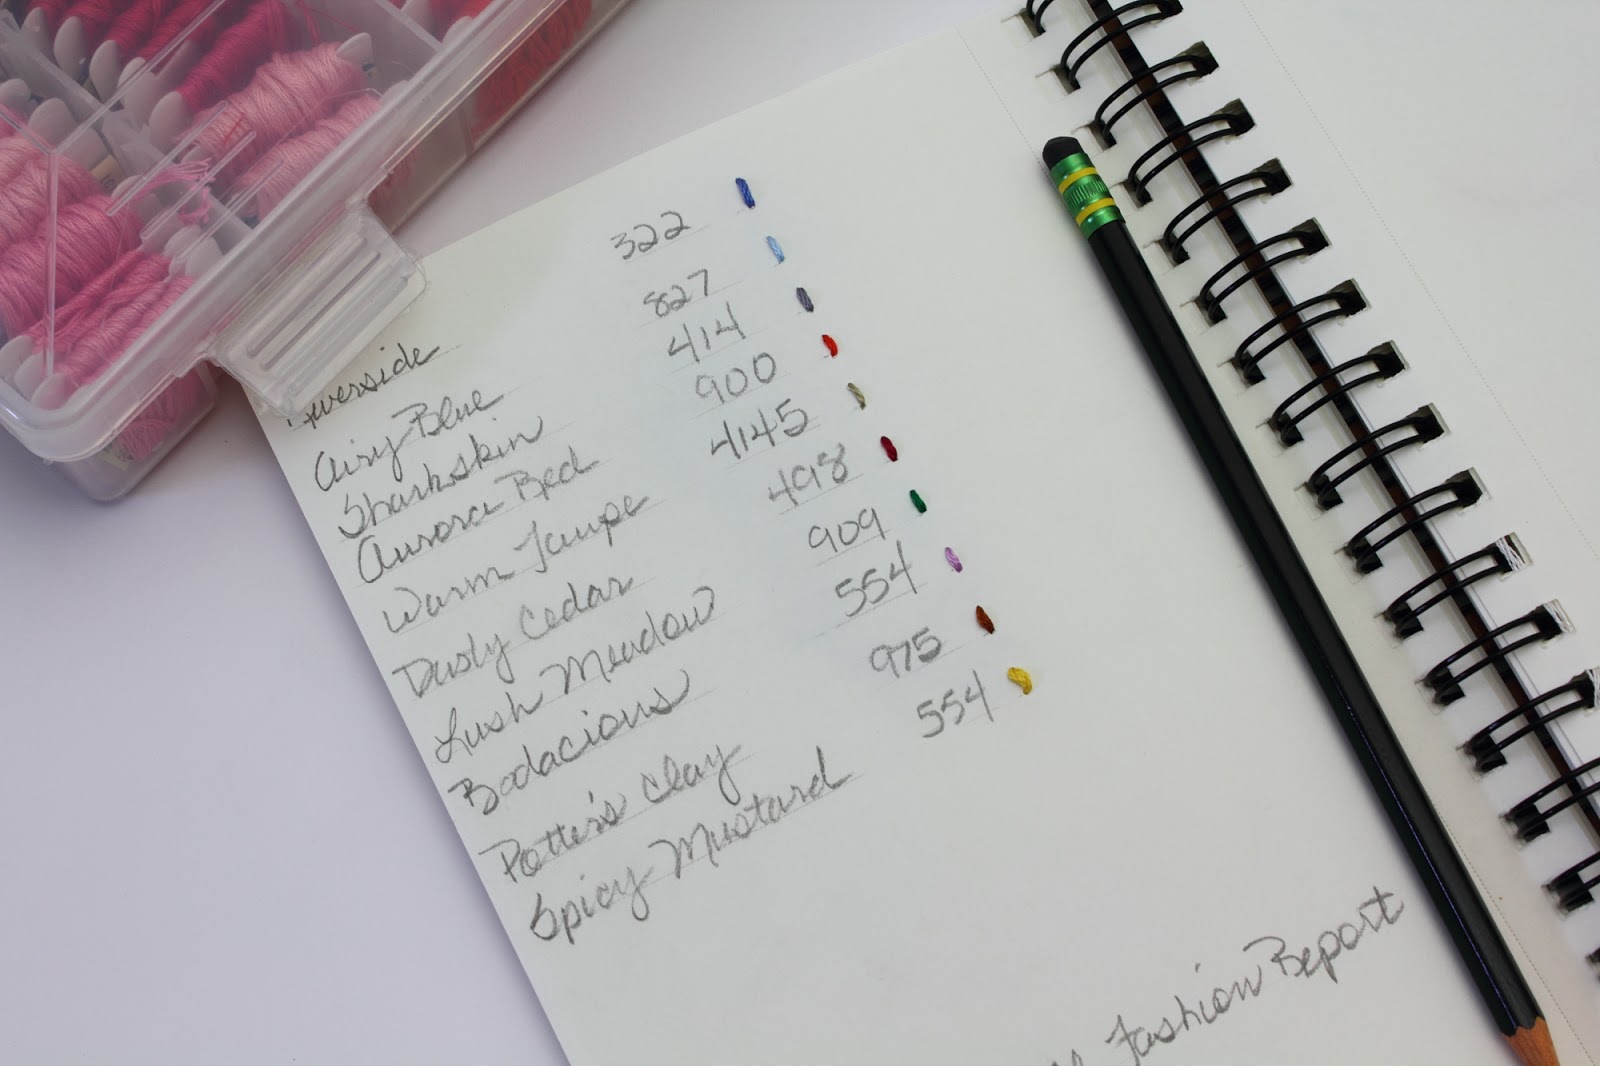 Riverside 322
Airy Blue 827
Sharkskin 414
Aurora Red 900
Warm Taupe 4145
Dusty Cedar 498
Lush Meadow 909
Bodacious 554
Potter's Clay 975
Spicy Mustard 554
Fashion Report